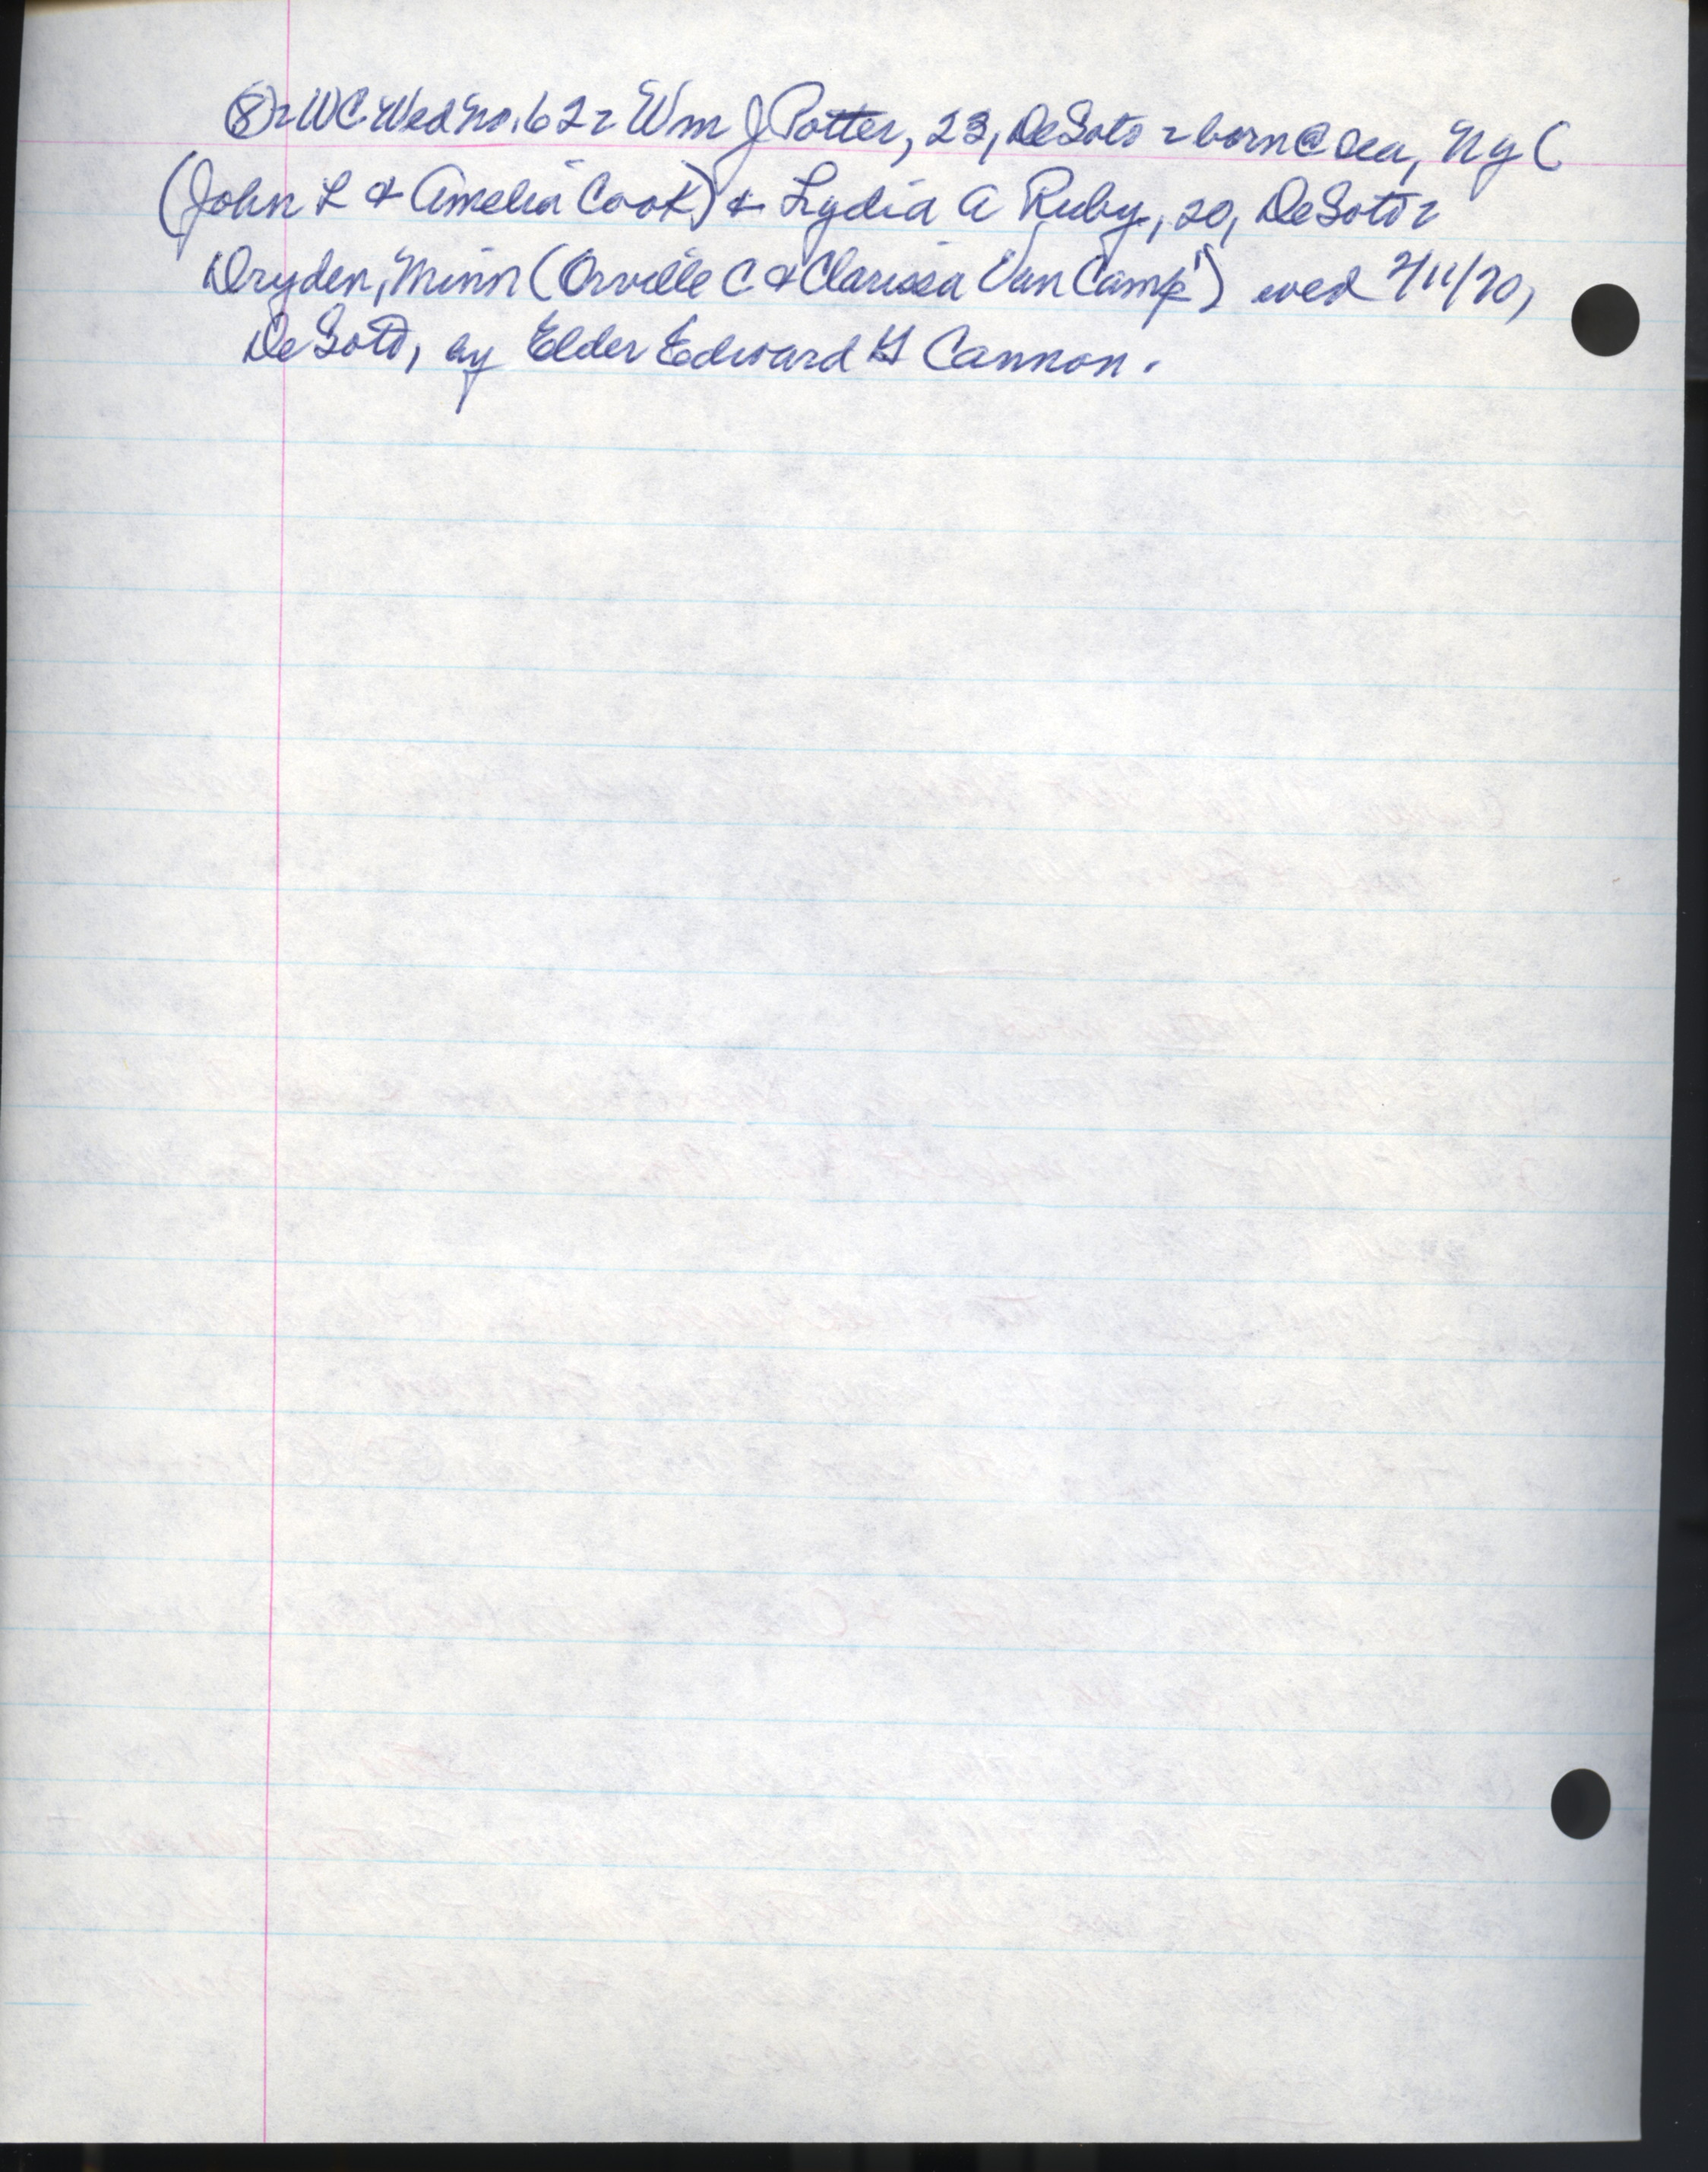 (8) ~ WC Wed No. 62 ~ Wm J Potter, 23, DeSoto ~ born @ sea, NY (
(John L & Amelia Cook) & Lydia A Ruby, 20, DeSoto ~
Dryden, Minn (Orville C & Clarissa "Van Camp") wed 2/11/70,
DeSoto, by Elder Edward G Cannon.